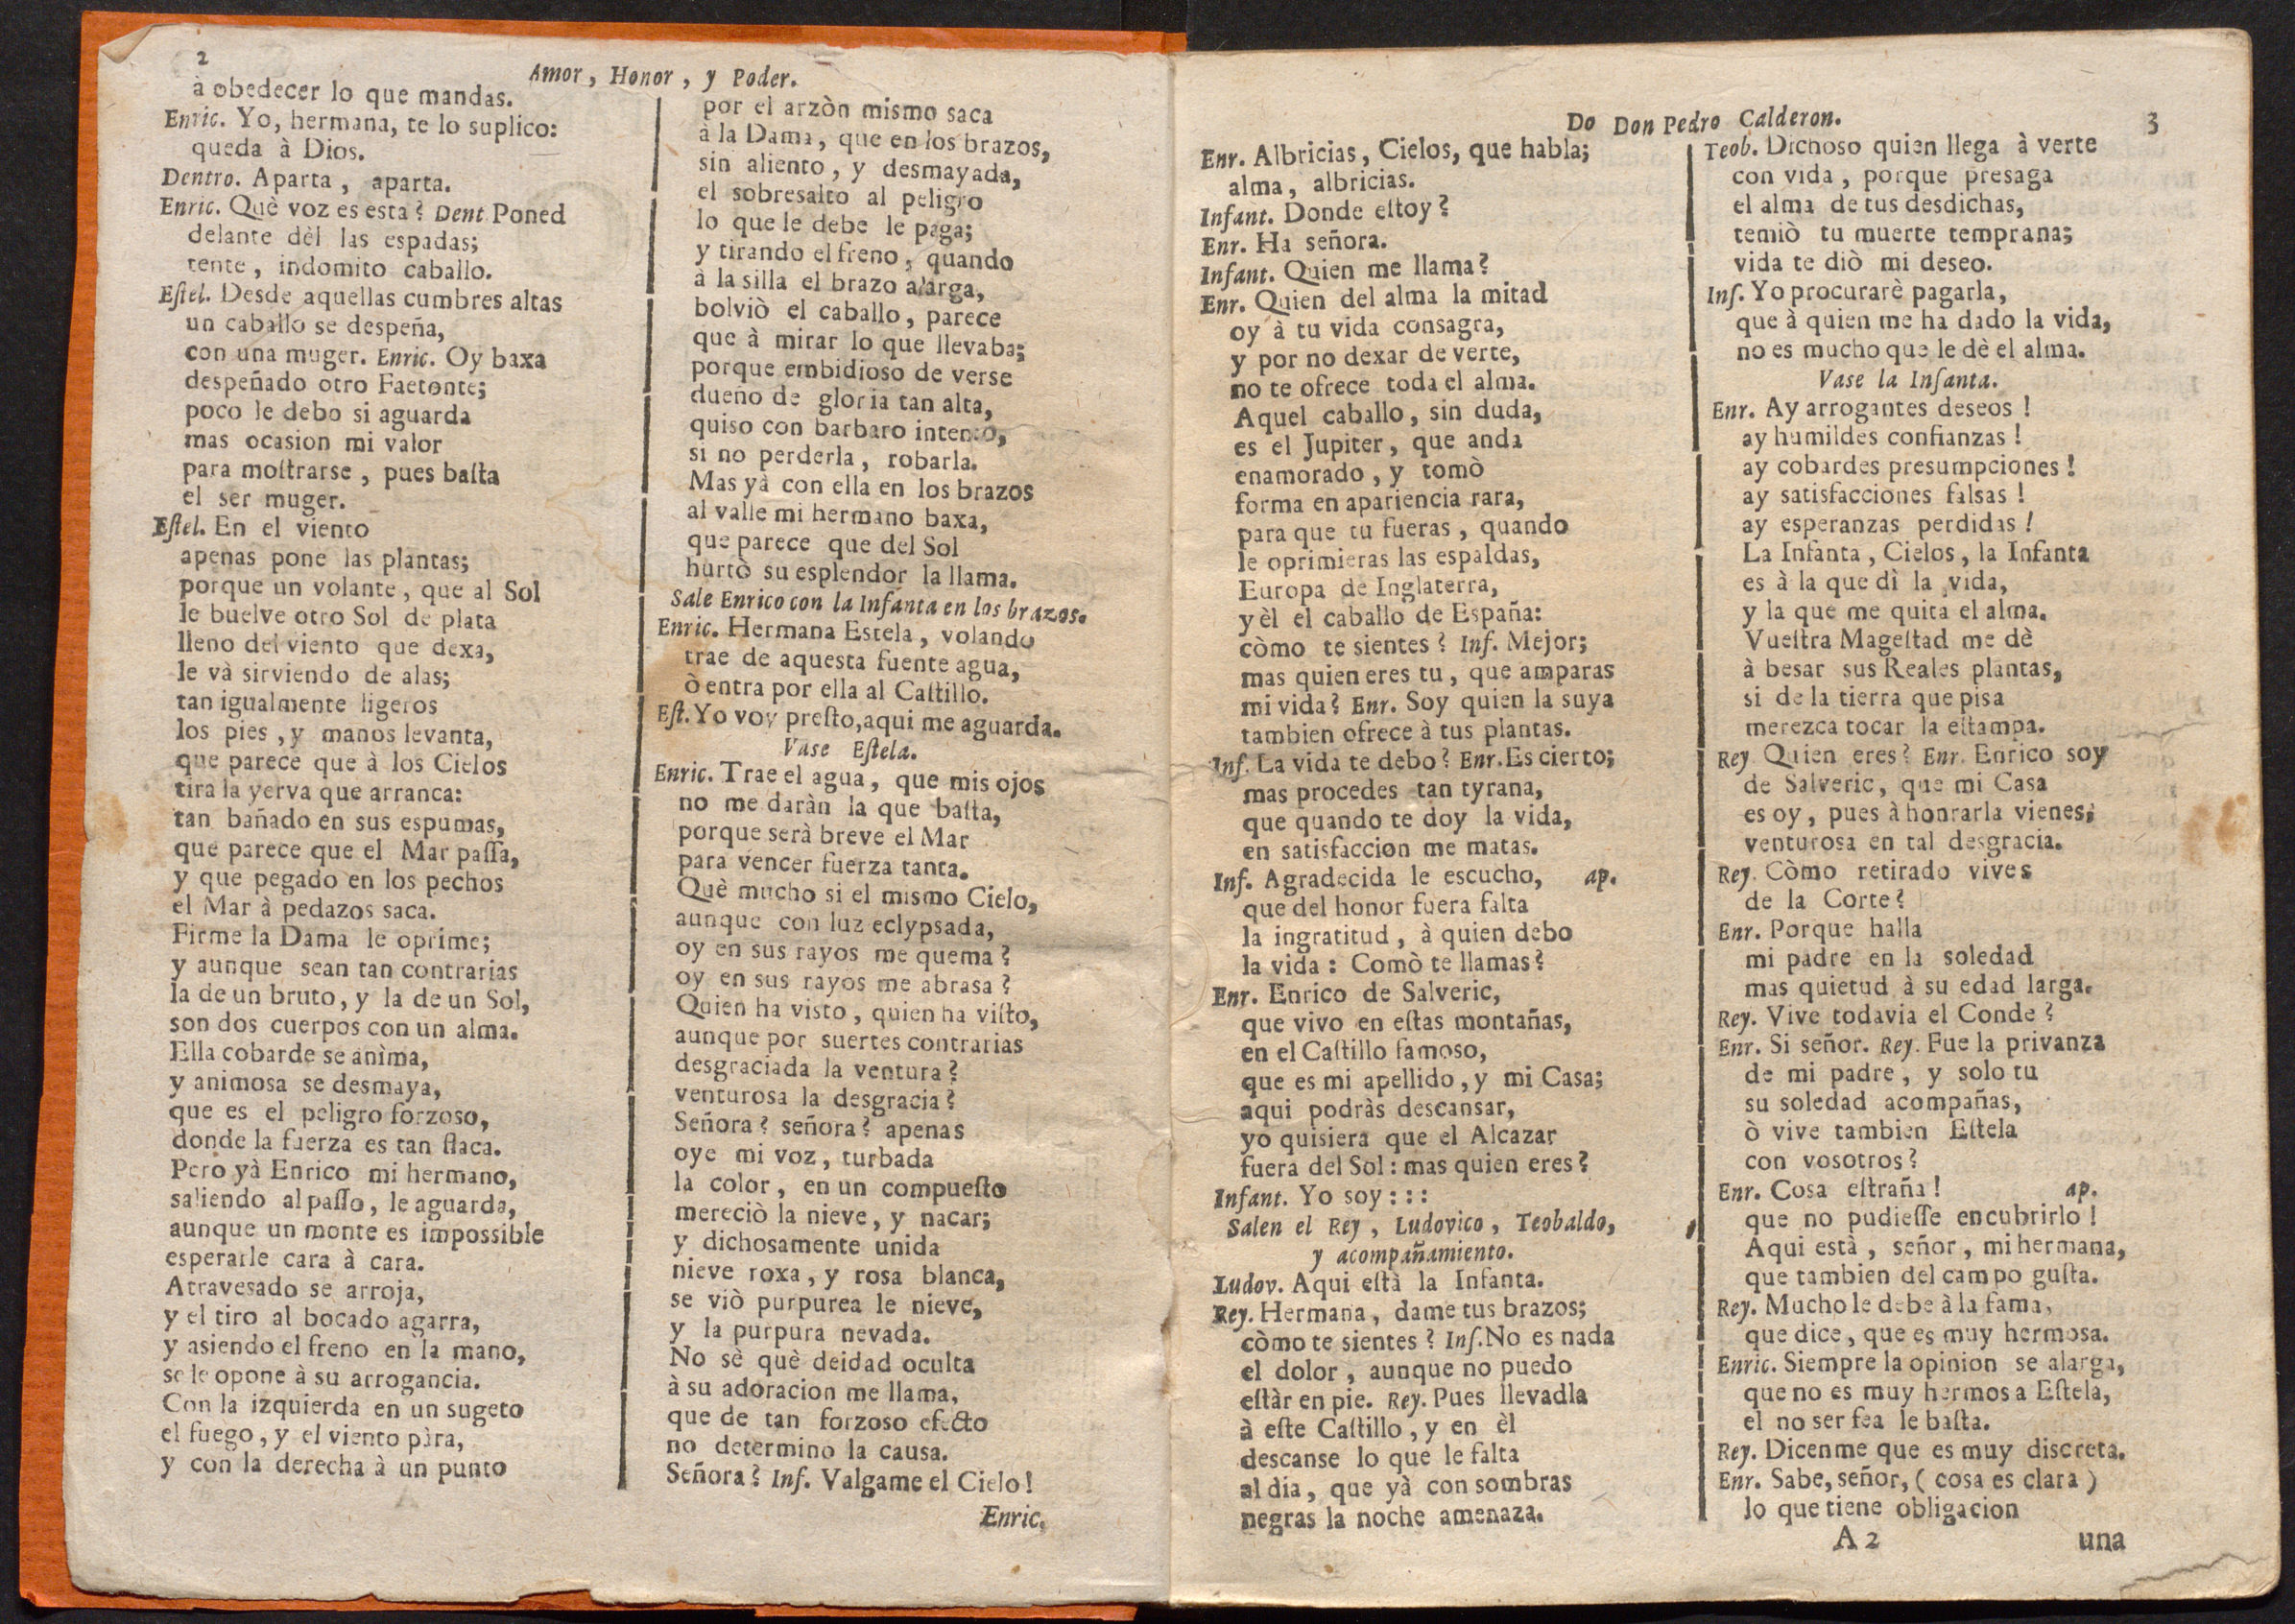 2
Amor, Honor, y Poder.
à obedecer lo que mandas.
Enric. Yo, hermana, te lo suplico:
queda à Dios.
Dentro. Aparta, aparta.
Enric. Què voz es esta? Dent. Poned
delante dèl las espadas;
tente, indomito caballo.
Eſtel. Desde aquellas cumbres altas
un caballo se despeña,
con una muger. Enric. Oy baxa
despeñado otro Faetonte;
poco le debo si aguarda
mas ocasion mi valor
para moſtrarse, pues baſta
el ser muger.
Eſtel. En el viento
apenas pone las plantas;
porque un volante, que al Sol
le buelve otro Sol de plata
lleno del viento que dexa,
le và sirviendo de alas;
tan igualmente ligeros
los pies, y manos levanta,
que parece que à los Cielos
tira la yerva que arranca:
tan bañado en sus espumas,
que parece que el Mar paſſa,
y que pegado en los pechos
el Mar à pedazos saca.
Firme la Dama le oprime;
y aunque sean tan contrarias
la de un bruto, y la de un Sol,
son dos cuerpos con un alma.
Ella cobarde se anìma,
y animosa se desmaya,
que es el peligro forzoso,
donde la fuerza es tan flaca.
Pero yà Enrico mi hermano,
saliendo al paſſo, le aguarda,
aunque un monte es impossible
esperarle cara à cara.
Atravesado se arroja,
y el tiro al bocado agarra,
y asiendo el freno en la mano,
se le opone à su arrogancia.
Con la izquierda en un sugeto
el fuego, y el viento pàra,
y con la derecha à un punto
por el arzòn mismo saca
à la Dama, que en los brazos,
sin aliento, y desmayada,
el sobresalto al peligro
lo que le debe le paga;
y tirando el freno, quando
à la silla el brazo alarga,
bolviò el caballo, parece
que à mirar lo que llevaba;
porque embidioso de verse
dueño de gloria tan alta,
quiso con barbaro intento,
si no perderla, robarla.
Mas yà con ella en los brazos
al valle mi hermano baxa,
que parece que del Sol
hurtò su esplendor la llama.
Sale Enrico con la Infanta en los brazos.
Enric. Hermana Estela, volando
trae de aquesta fuente agua,
ò entra por ella al Caſtillo.
Eſt. Yo voy preſto, aqui me aguarda.
Vase Eſtela.
Enric. Trae el agua, que mis ojos
no me daràn la que baſta,
porque serà breve el Mar
para vencer fuerza tanta.
Què mucho si el mismo Cielo,
aunque con luz eclypsada,
oy en sus rayos me quema?
oy en sus rayos me abrasa?
Quien ha visto, quien ha viſto,
aunque por suertes contrarias
desgraciada la ventura?
venturosa la desgracia?
Señora? señora? apenas
oye mi voz, turbada
la color, en un compueſto
mereciò la nieve, y nacar;
y dichosamente unida
nieve roxa, y rosa blanca,
se viò purpurea le nieve,
y la purpura nevada.
No sè què deidad oculta
à su adoracion me llama,
que de tan forzoso efecto
no determino la causa.
Señora? Inf. Valgame el Cielo!
Enric.
Do Don Pedro Calderon.
3
Enr. Albricias, Cielos, que habla;
alma, albricias.
Infant. Donde eſtoy?
Enr. Ha señora.
Infant. Quien me llama?
Enr. Quien del alma la mitad
oy à tu vida consagra,
y por no dexar de verte,
no te ofrece toda el alma.
Aquel caballo, sin duda,
es el Jupiter, que anda
enamorado, y tomò
forma en apariencia rara,
para que tu fueras, quando
le oprimieras las espaldas,
Europa de Inglaterra,
y èl el caballo de España:
còmo te sientes? Inf. Mejor;
mas quien eres tu, que amparas
mi vida? Enr. Soy quien la suya
tambien ofrece à tus plantas.
Inf. La vida te debo? Enr. Es cierto;
mas procedes tan tyrana,
que quando te doy la vida,
en satisfaccion me matas.
Inf. Agradecida le escucho, ap.
que del honor fuera falta
la ingratitud, à quien debo
la vida: Comò te llamas?
Enr. Enrico de Salveric,
que vivo en eſtas montañas,
en el Caſtillo famoso,
que es mi apellido, y mi Casa;
aqui podràs descansar,
yo quisiera que el Alcazar
fuera del Sol: mas quien eres?
Infant. Yo soy:::
Salen el Rey, Ludovico, Teobaldo,
y acompañamiento.
Ludov. Aqui eſtà la Infanta.
Rey. Hermana, dame tus brazos;
còmo te sientes? Inſ. No es nada
el dolor, aunque no puedo
eſtàr en pie. Rey. Pues llevadla
à eſte Caſtillo, y en èl
descanse lo que le falta
al dia, que yà con sombras
negras la noche amenaza.
Teob. Dichoso quien llega à verte
con vida, porque presaga
el alma de tus desdichas,
temiò tu muerte temprana;
vida te diò mi deseo.
Inſ. Yo procurarè pagarla,
que à quien me ha dado la vida,
no es mucho que le dè el alma.
Vase la Inſanta.
Enr. Ay arrogantes deseos!
ay humildes confianzas!
ay cobardes presumpciones!
ay satisfacciones falsas!
ay esperanzas perdidas!
La Infanta, Cielos, la Infanta
es à la que dì la vida,
y la que me quita el alma.
Vueſtra Mageſtad me dè
à besar sus Reales plantas,
si de la tierra que pisa
merezca tocar la eſtampa.
Rey Quien eres? Enr. Enrico soy
de Salveric, que mi Casa
es oy, pues à honrarla vienes;
venturosa en tal desgracia.
Rey. Còmo retirado vives
de la Corte?
Enr. Porque halla
mi padre en la soledad
mas quietud à su edad larga.
Rey. Vive todavia el Conde?
Enr. Si señor. Rey. Fue la privanza
de mi padre, y solo tu
su soledad acompañas,
ò vive tambien Eſtela
con vosotros?
Enr. Cosa eſtraña! ap.
que no pudieſſe encubrirlo!
Aqui està, señor, mi hermana,
que tambien del campo guſta.
Rey. Mucho le debe à la fama,
que dice, que es muy hermosa.
Enric. Siempre la opinion se alarga,
que no es muy hermosa Eſtela,
el no ser fea le baſta.
Rey. Dicenme que es muy discreta.
Enr. Sabe, señor, (cosa es clara)
lo que tiene obligacion
A 2
una